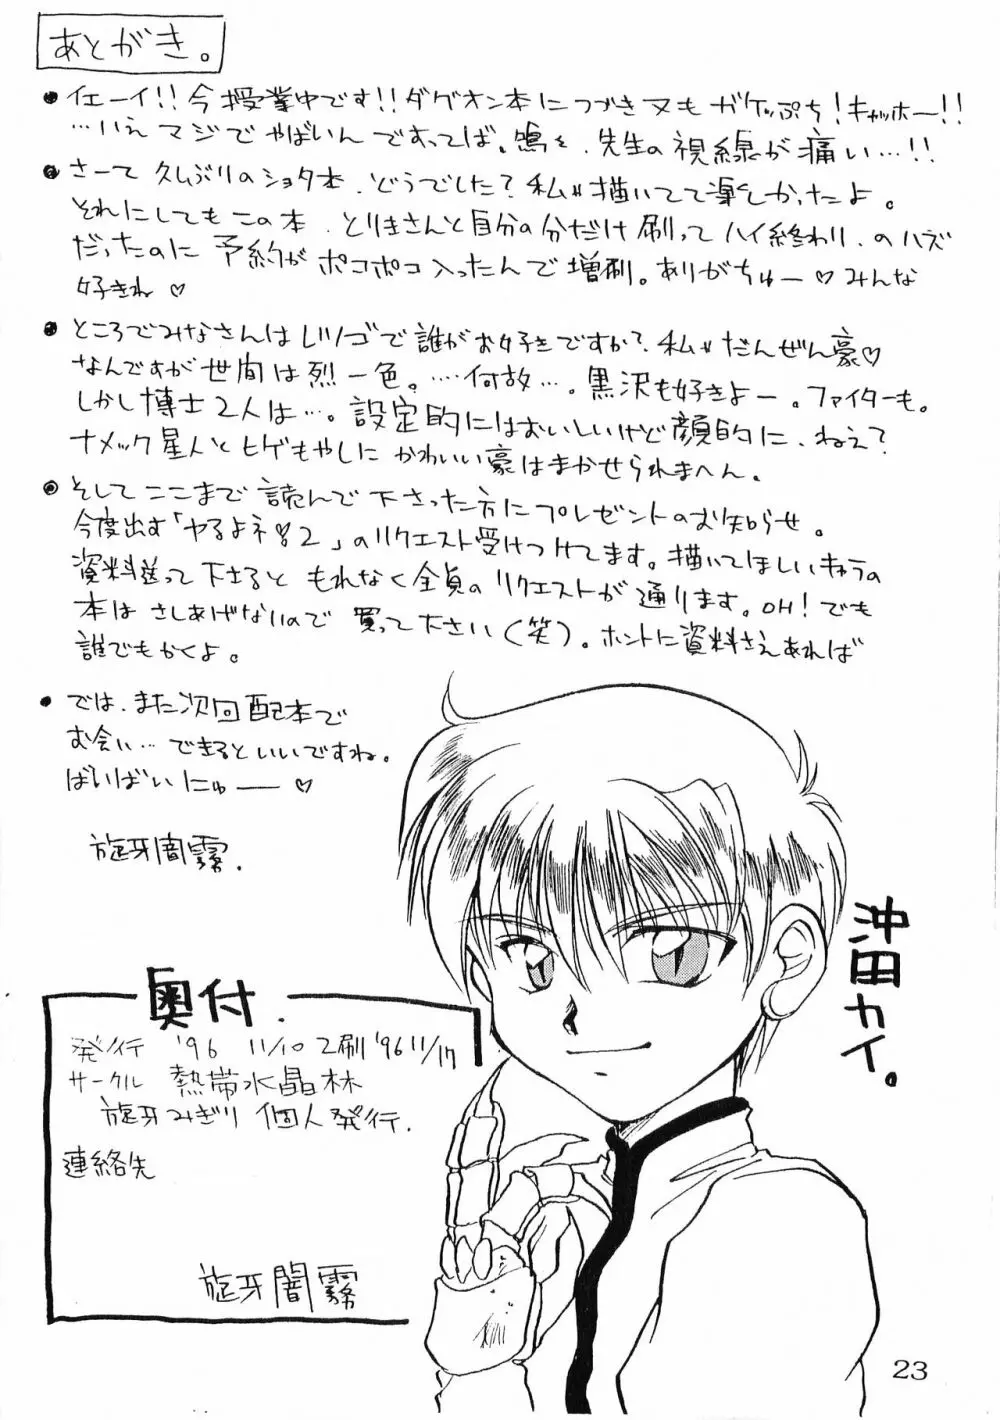 あとがき。
・イエーイ!!今授業中です!!ダグオン本につづき又もガケっぷち!キャッホー!!
…いえマジでやばいんですってば。鳴々、先生の視線が痛い…!!
・さーて久しぶりのショタ本、どうでした?私は描いてて楽しかったよ。
それにしてもこの本、とりまさんと自分の分だけ刷ってハイ終わり、のハズ
だったのに予約がポコポコ入ったんで増刷。ありがちゅー♡みんな
好きね♡
・ところでみなさんはレツゴで誰がお好きですか?私はだんぜん豪♡
なんですが世間は烈一色。…何故…。黒沢も好きよー。ファイターも。
しかし博士2人は…。設定的にはおいしいけど顔的に、ねえ?
ナメック星人とヒゲもやしにかわいい豪はまかせられまへん。
・そしてここまで読んで下さった方にプレゼントのお知らせ。
今度出す「ヤるよネ 2」のリクエスト受けつけてます。描いてほしいキャラの
資料送って下さるともれなく全員のリクエストが通ります。OH!でも
本はさしあげないので買って下さい(笑)。ホントに資料さえあれば
誰でもかくよ。
・では、また次回配本で
お会い…できるといいですね。
ばいばいにゅー♡
旋牙闇霧.
沖田カイ。
奥付.
発行 '96 11/10 2刷 '96 11/17
サークル 熱帯水晶林
旋牙みぎり 個人発行.
連絡先
旋牙闇霧
23